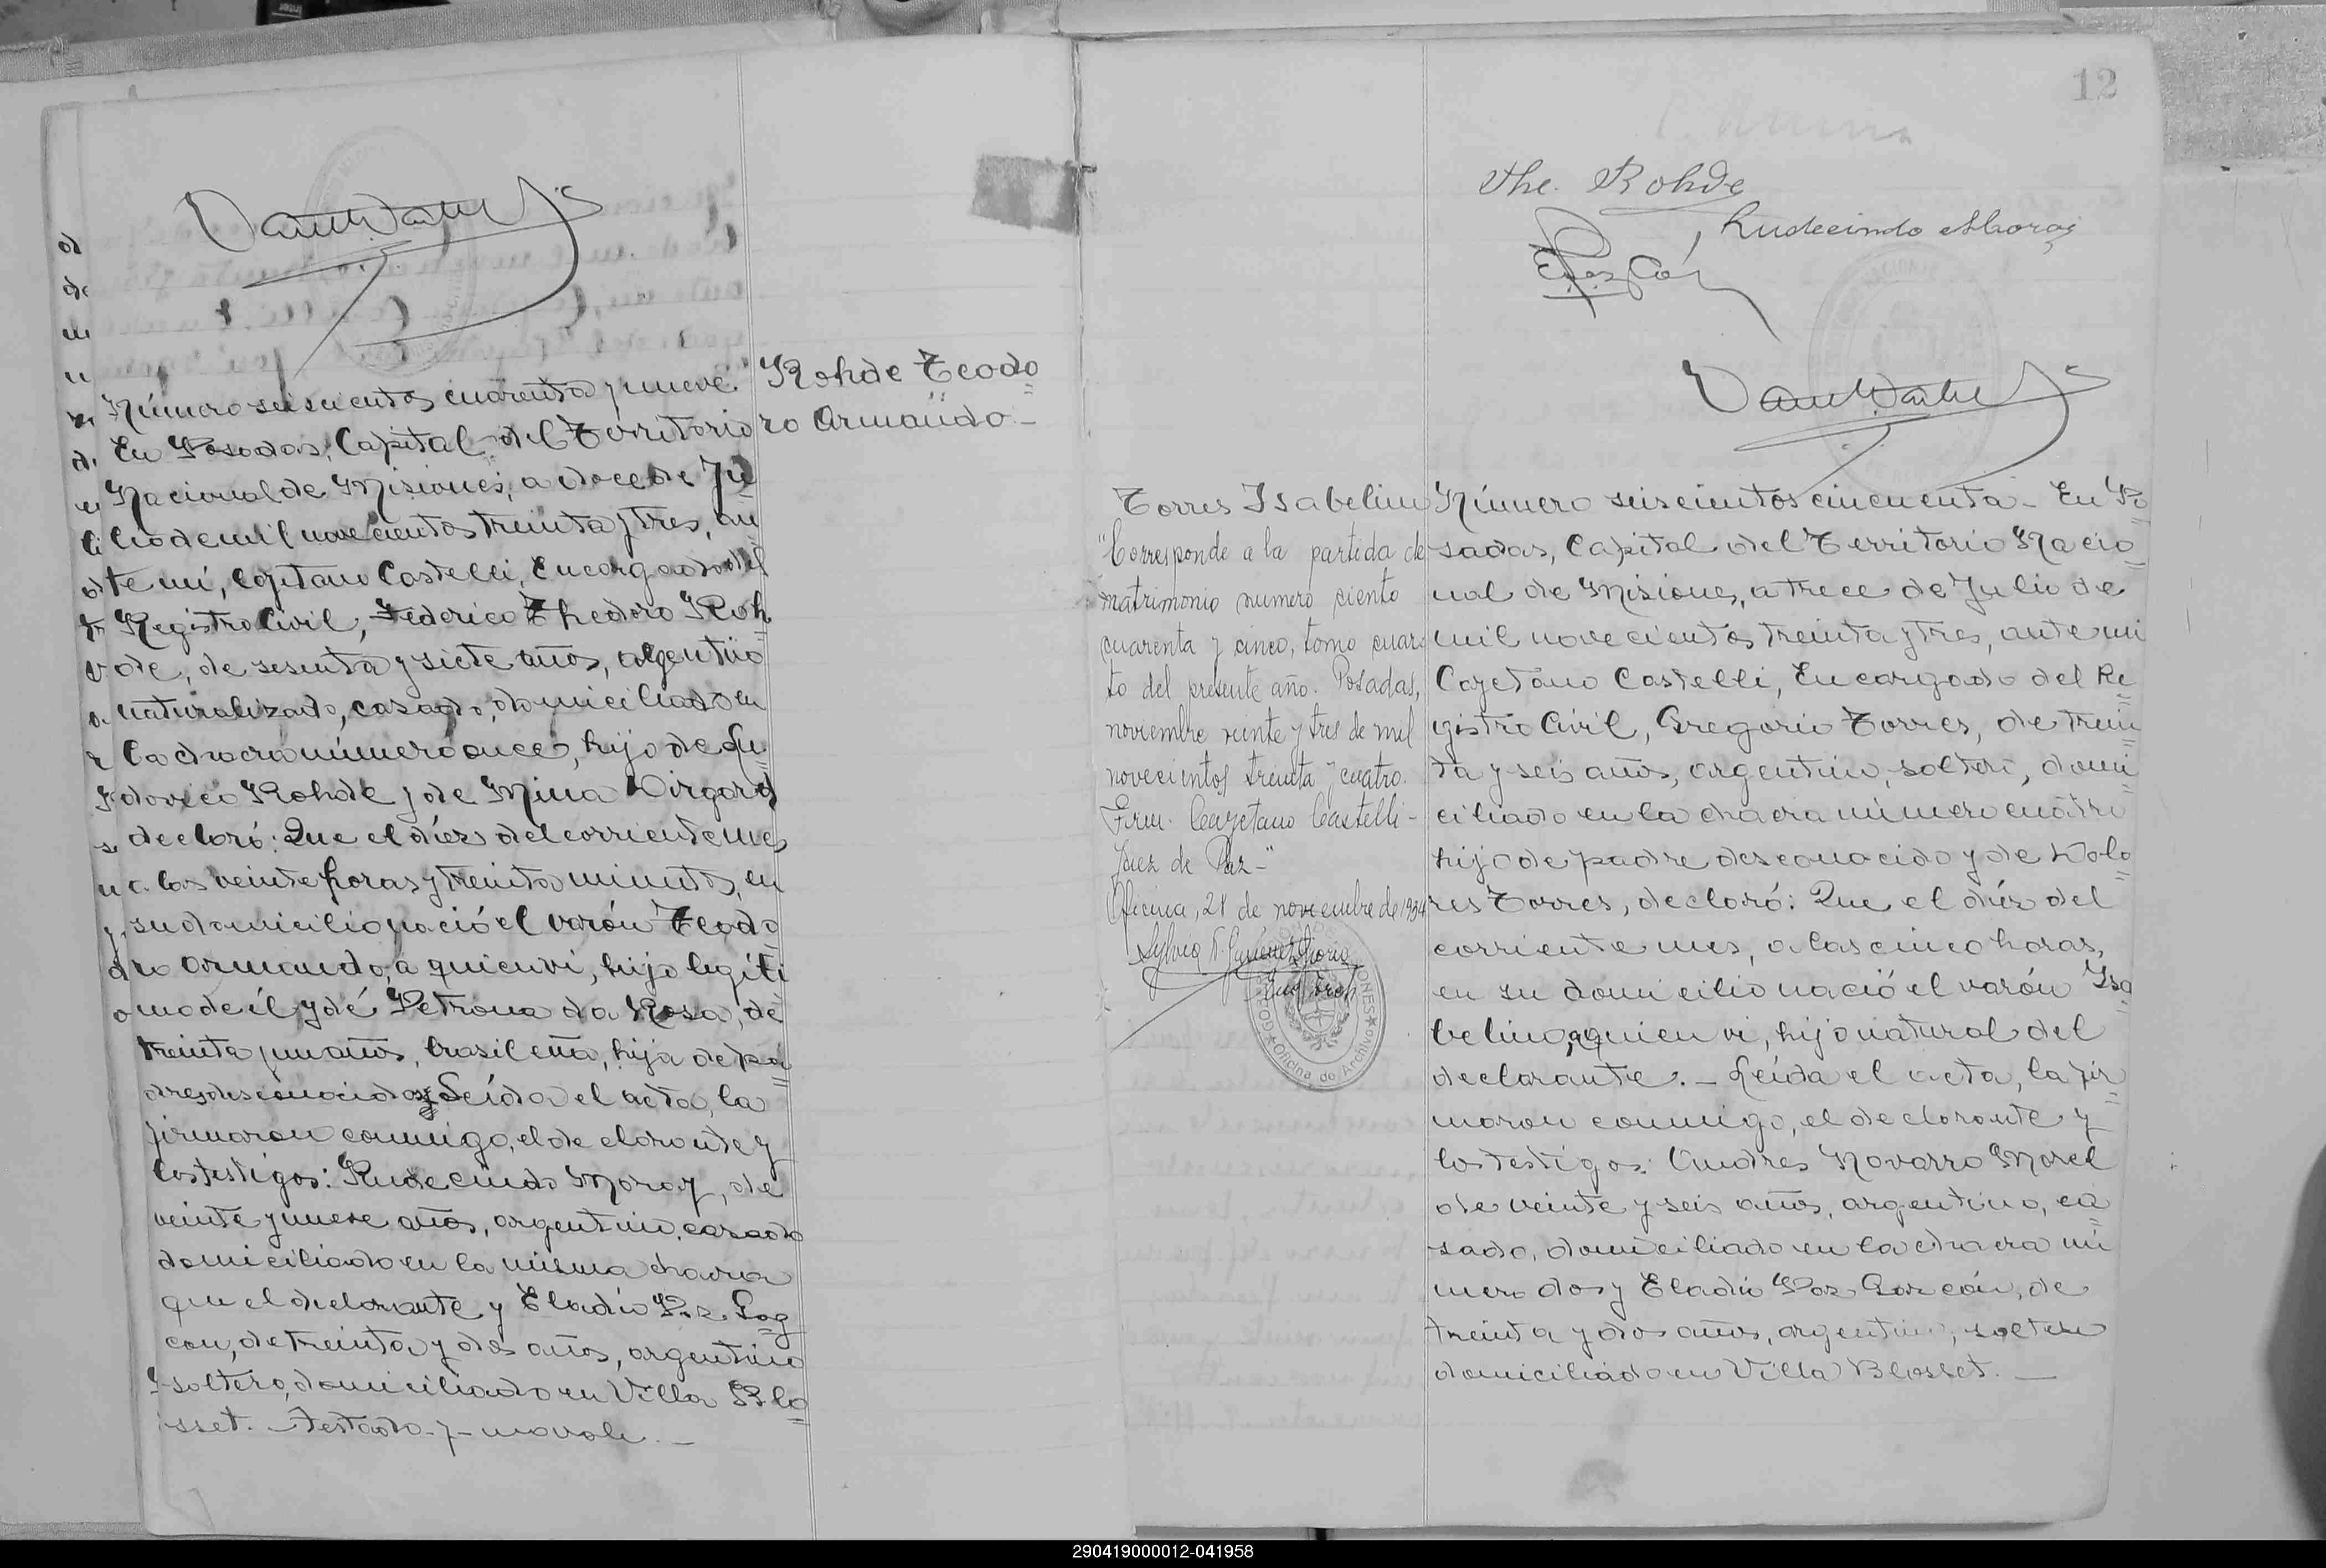 Número seiscientos cuarenta y nueve.
En Posadas, Capital del Territorio
Nacional de Misiones, a doce de Ju
lio de mil novecientos treinta y tres, an
te mí, Cayetano Castelli, Encargado del
Registro Civil, Federico Theodoro Roh
de, de sesenta y siete años, argentino
naturalizado, casado, domiciliado en
la chacra número once, hijo de Lu
dovico Rohde y de Mina
declaró: Que el diez del corriente mes
a las veinte horas y treinta minutos, en
su domicilio nació el varón Teodo
ro Armando, a quien vi, hijo legíti
mo de él y de Petrona da Rosa, de
treinta y un años, brasileña, hija de pa
dres desconocidos. Leída el acta, la
firmaron conmigo, el declarante y
los testigos: Rudecindo Moray, de
veinte y nueve años, argentino, casado
domiciliado en la misma chacra
que el declarante y Eladio Paz
con, de treinta y dos años, argentino
soltero, domiciliado en Villa Blo
sset. — Testado - y - no vale. —
Rohde Teodo
ro Armando. —
12
The. Rohde
Rudecindo Moray
Torres Isabelino
"Corresponde a la partida de
matrimonio numero ciento
cuarenta y cinco, tomo cuar
to del presente año. Posadas,
noviembre veinte y tres de mil
novecientos treinta y cuatro.
Firm. Cayetano Castelli -
Juez de Paz -"
Oficina, 28 de noviembre de 1934
Oficina de Archivo
Número seiscientos cincuenta - En Po
sadas, Capital del Territorio Nacio
nal de Misiones, a trece de Julio de
mil novecientos treinta y tres, ante mi
Cayetano Castelli, Encargado del Re
gistro Civil, Gregorio Torres, de trein
ta y seis años, argentino, soltero, domi
ciliado en la chacra número cuatro
hijo de padre desconocido y de Dolo
res Torres, declaró: Que el diez del
corriente mes, a las cinco horas,
en su domicilio nació el varón Isa
belino, a quien vi, hijo natural del
declarante. — Leída el acta, la fir
maron conmigo, el declarante y
los testigos: Andres Navarro Morel
de veinte y seis años, argentino, ca
sado, domiciliado en la chacra nú
mero dos y Eladio Paz Garcon, de
treinta y dos años, argentino, soltero
domiciliado en Villa Blosset. —
290419000012-041958